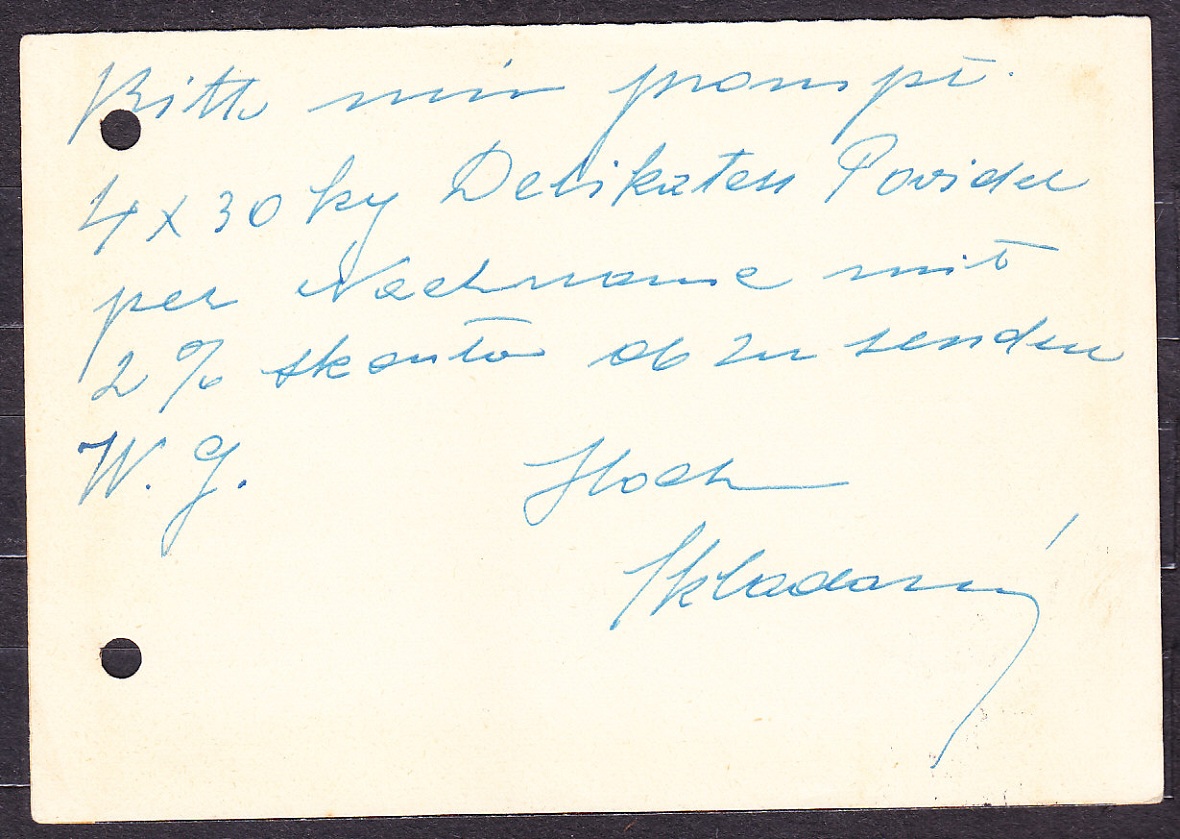 Bitte mir prompt.
4 x 30 kg Delikaten Povidel
per Nachname mit
2 % skonto ab zu senden
W. g. Hoch